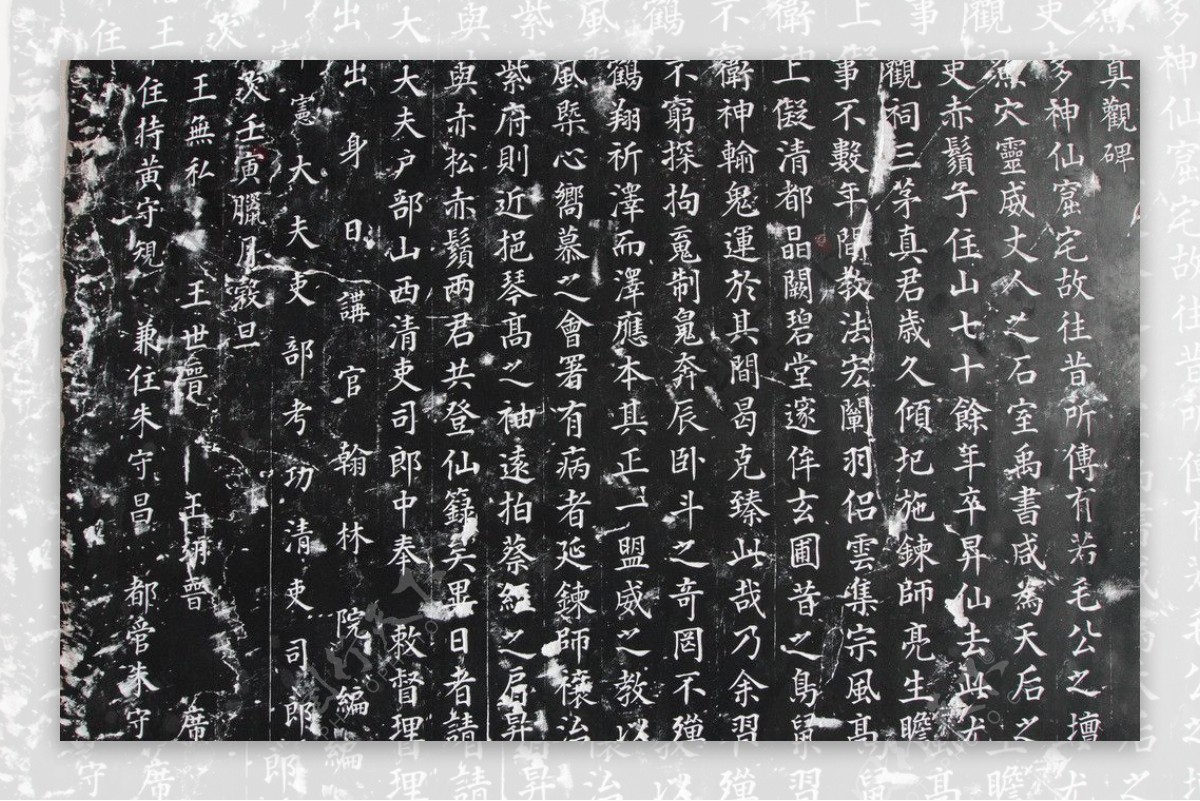 真觀碑
多神仙窟宅故往昔所傳有若毛公之壇
穴靈威丈人之石室禹書咸為天后之
吏赤鬚子住山七十餘年卒昇仙去此尤
觀祠三茅真君歲久傾圮施鍊師亮生瞻
事不數年間教法宏闡羽侶雲集宗風高
上假清都晶闕碧堂邃侔玄圃昔之鳥鼠
衛神輸鬼運於其間曷克臻此哉乃余習
不窮探拘䰠制鬼奔辰卧斗之奇罔不殫
鶴翔祈澤而澤應本其正一盟威之教以
風槩心嚮慕之會署有病者延鍊師禳治
紫府則近挹琴高之袖遠拍蔡經之肩昇
與赤松赤鬚兩君共登仙籙矣異日者請
大夫户部山西清吏司郎中奉敕督理
出身日講官翰林院編
憲大夫吏部考功清吏司郎
次壬寅臘月穀旦
王無私 王世 王 席
住持黃守規 兼住朱守昌 都管朱守